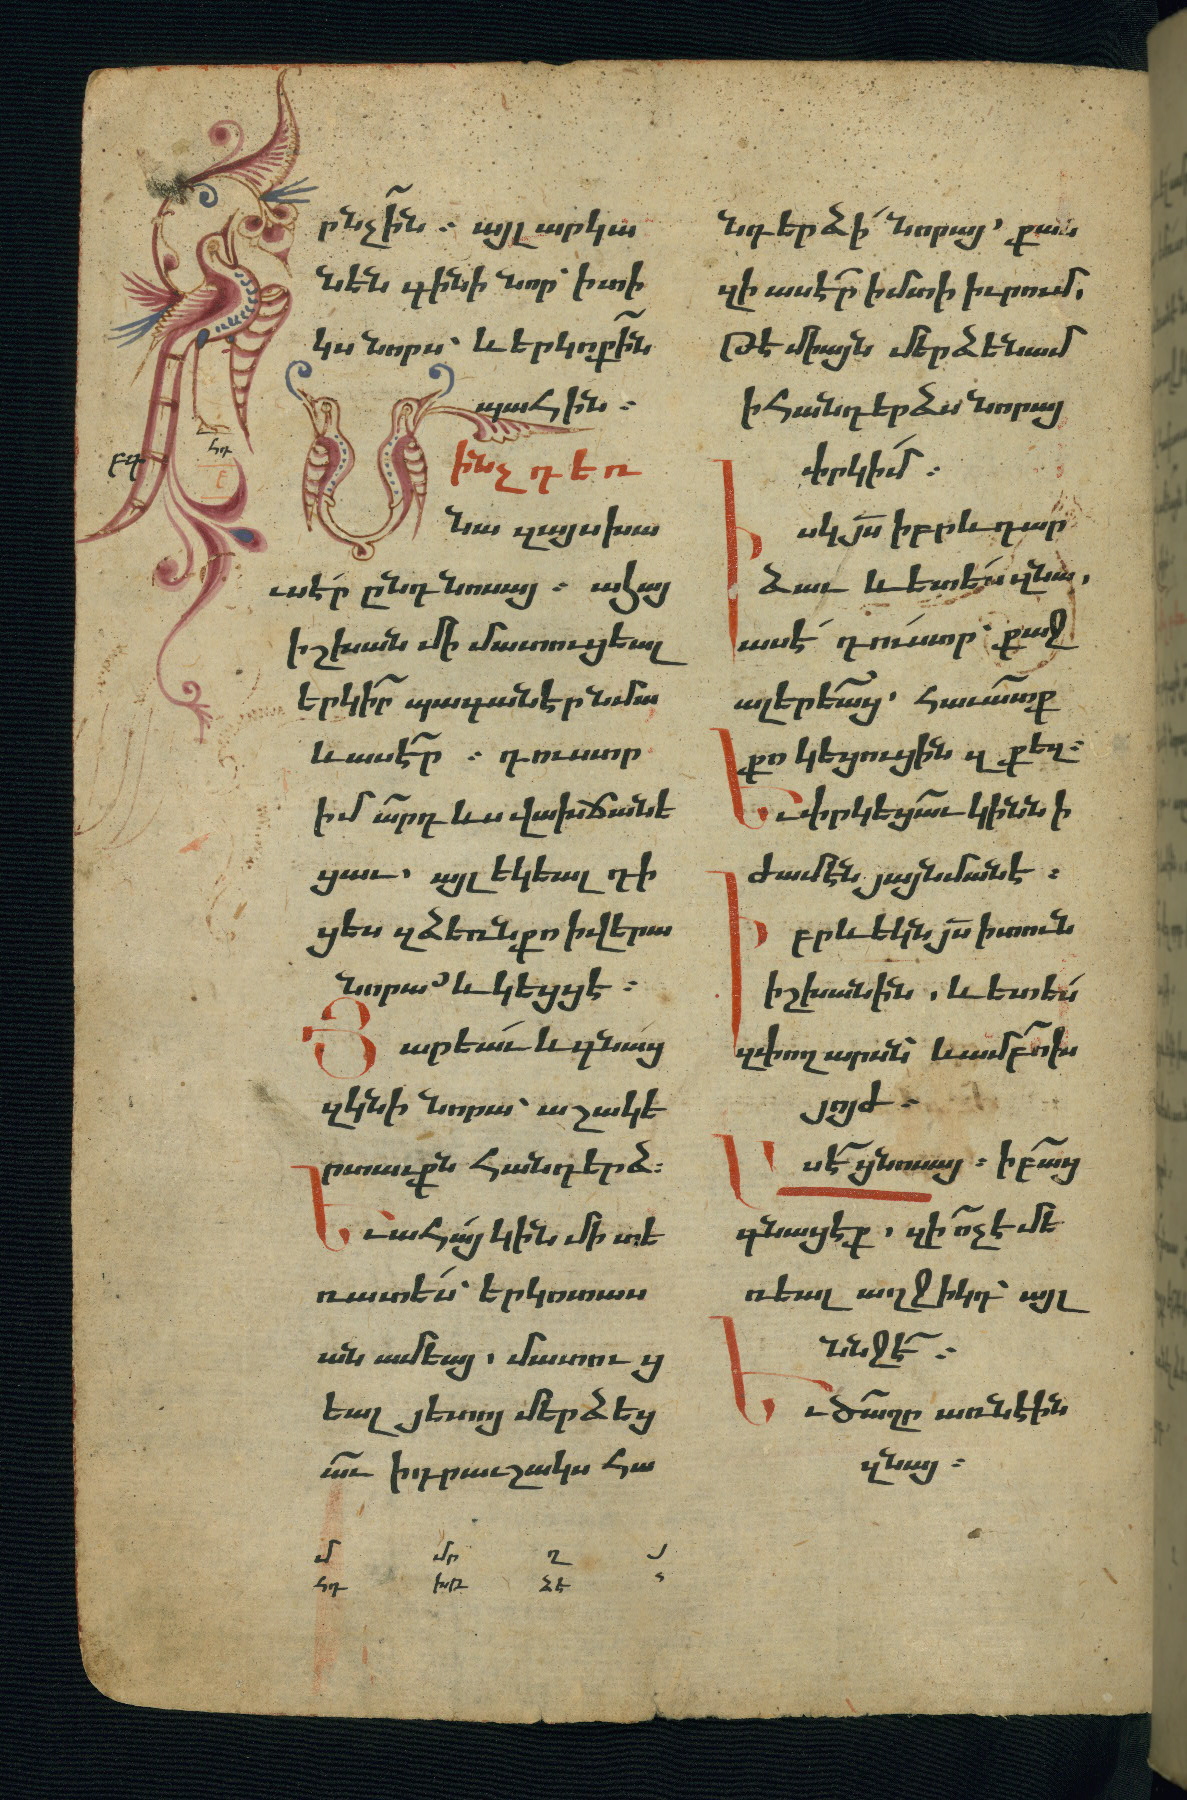 րնչին ։ այլ արկա
նեն գինի նոր՝ ի տի
կս նորս՝ և երկոքին
պահին ։
Մինչ դեռ
նա զայս խա
ւսէր ընդ նոսայ ։ ահայ
իշխան մի մատուցեալ
երկիր պագանէր նմա
և ասէր ։ դուստր
իմ արդ ևս վախճանե
ցաւ, այլ եկեալ դի
ցես զձեռն քո ի վերա
նորա՝ և կեցցէ ։
Յարեաւ և գնաց
զկնի նորա՝ աշակե
րտաւքն հանդերձ։
Եւ ահայ կին մի տե
ռատես՝ երկոտաս
ան ամեայ, մատուց
եալ յետոյ մերձեց
աւ ի դրաւշակս հա
նդերձի նորայ, քան
զի ասէր ի մտի իւրում,
Թէ միայն մերձենամ
ի հանդերձս նորայ
փրկիմ ։
Իսկ յս իբրև դար
ձաւ և ետես զնա,
ասէ դուստր՝ քաջ
ալերեաց, հաւատք
քո կեցուցին զքեզ։
Եւ փրկեցաւ կինն ի
ժամէն յայնմանէ ։
Իբրև եկն յս ի տուն
իշխանին, և ետես
զփողարսն՝ և ամբոխ
յոյժ ։
Ասէ ցնոսայ ։ ի բաց
գնացեք, զի ոչ է մե
ռեալ աղջիկդ՝ այլ
ննջէ ։
Եւ ծաղր առնէին
զնայ ։
հդ
մ մր ղ յ
հդ